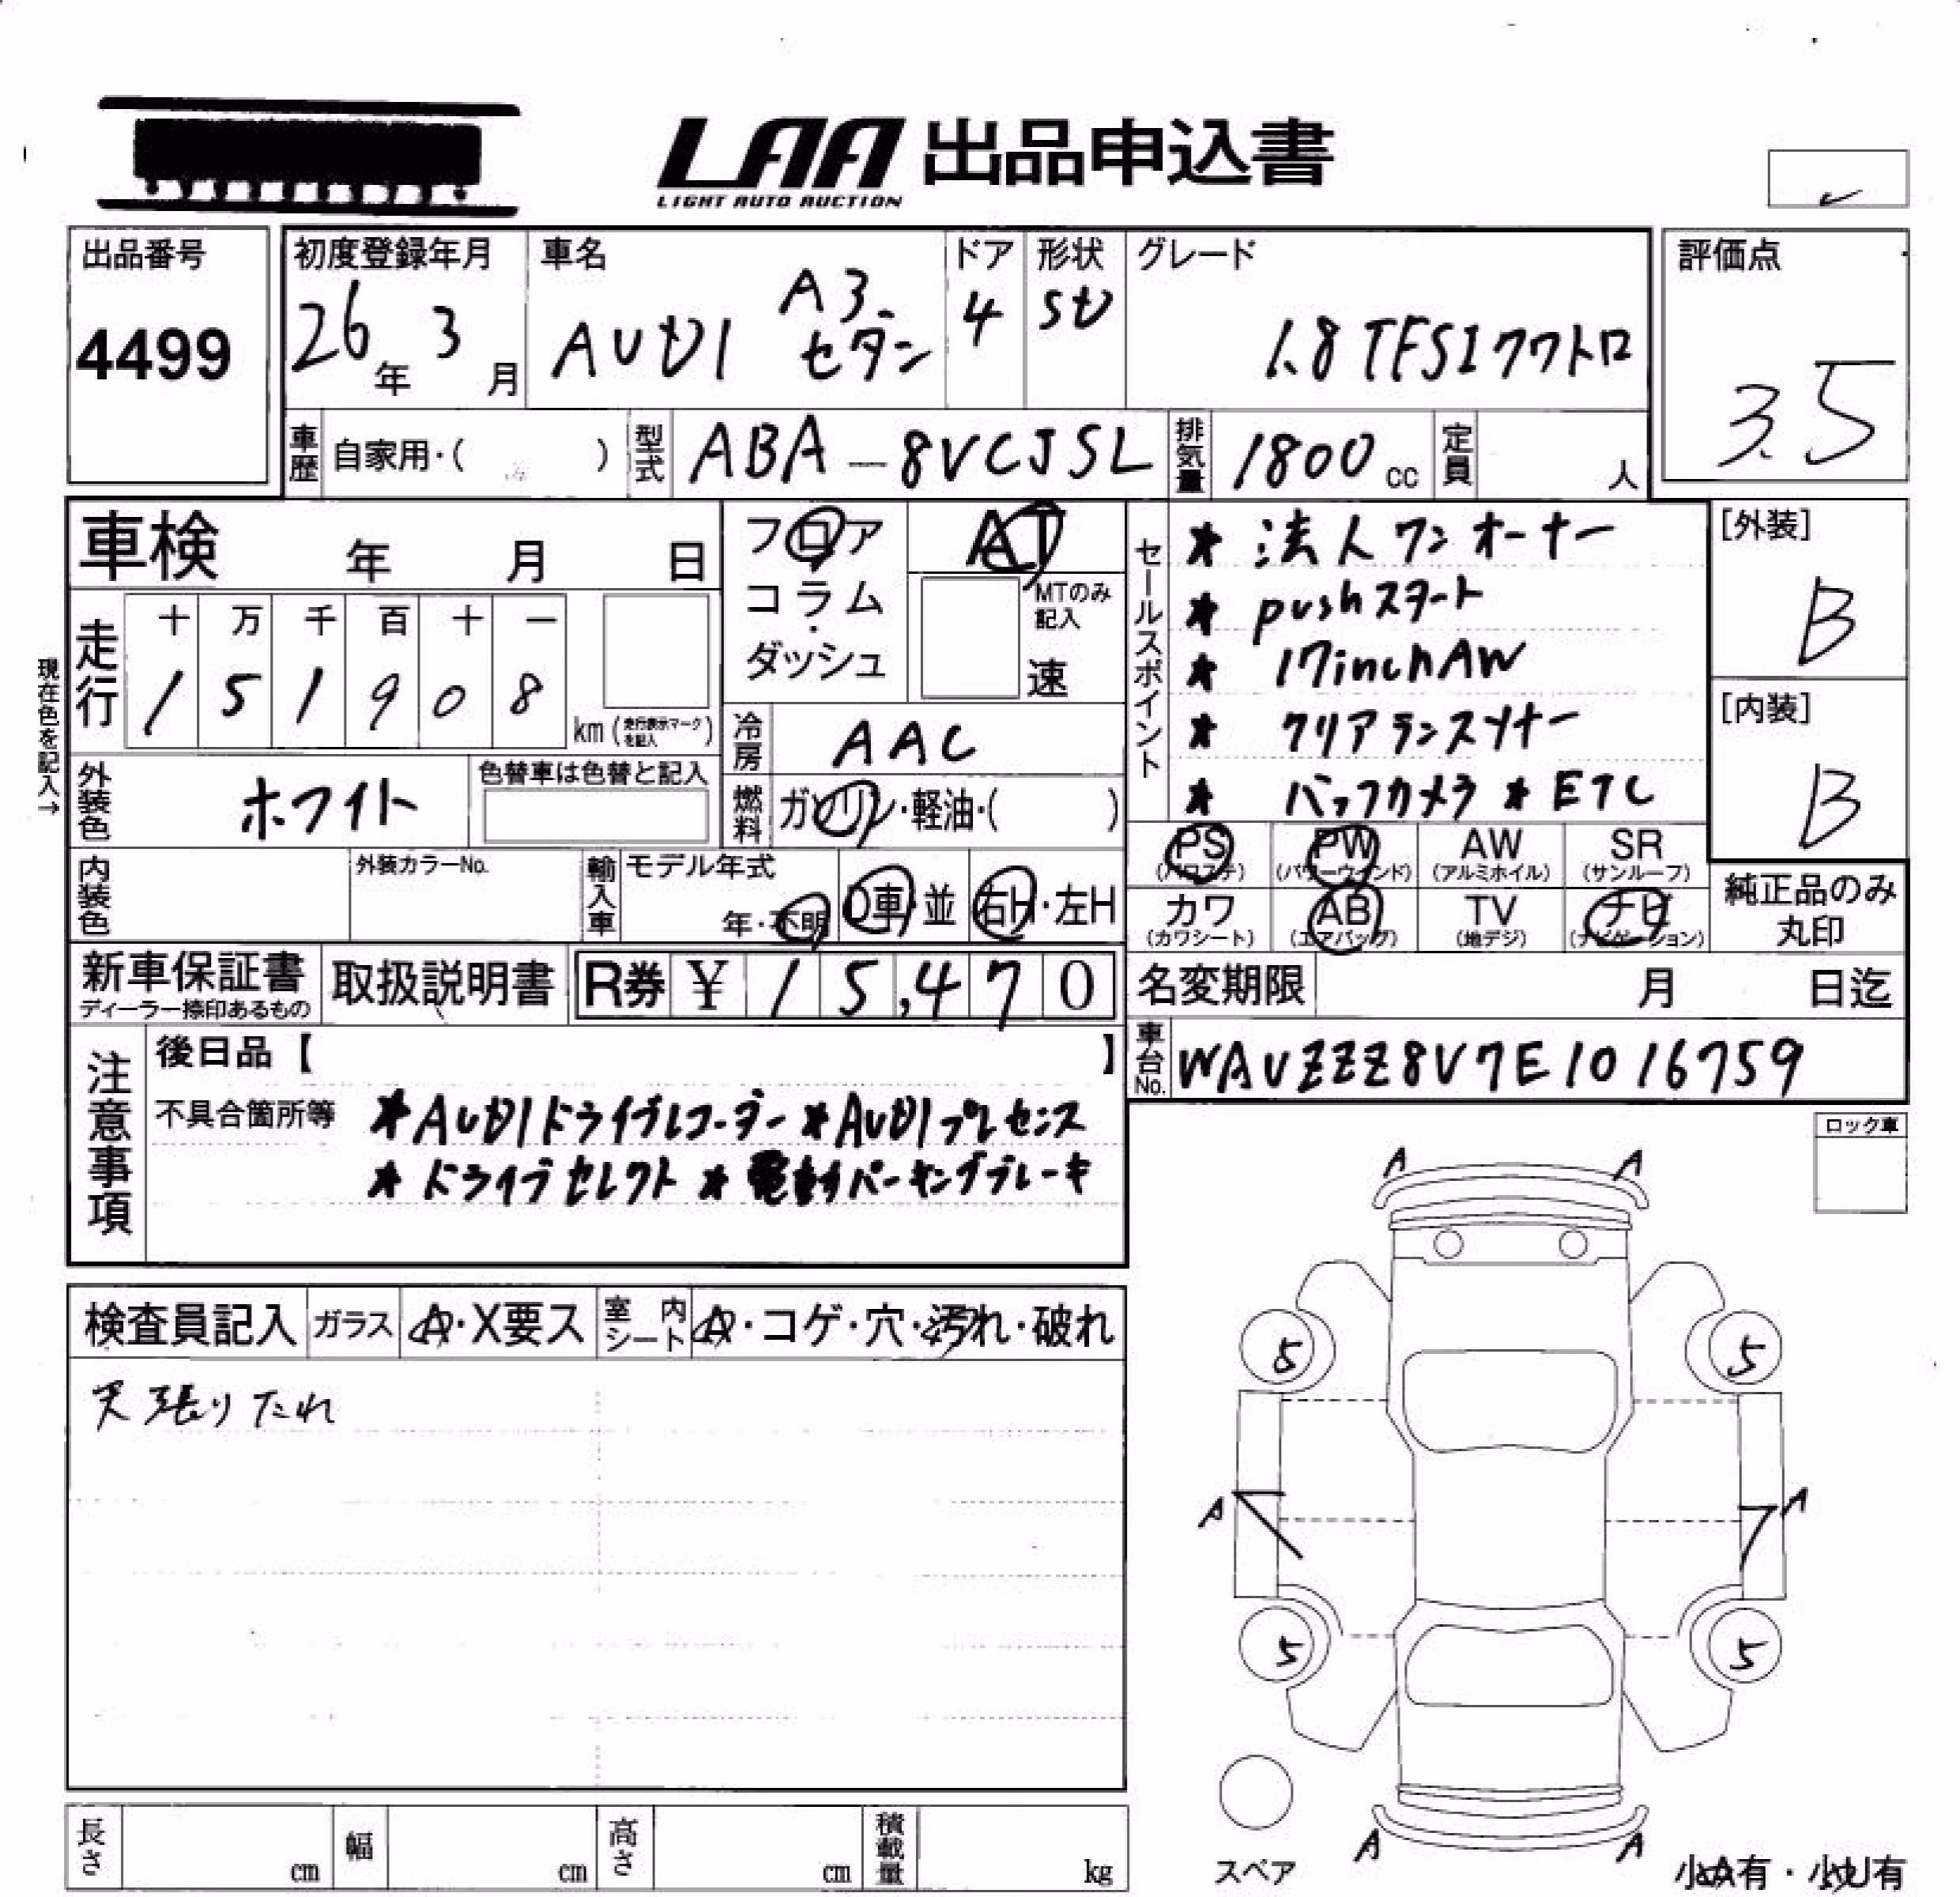 LAA 出品申込書
LIGHT AUTO AUCTION
出品番号
4499
初度登録年月
26年 3月
車名
AUDI A3 セダン
ドア
4
形状
SD
グレード
1.8TFSIクワトロ
評価点
3.5
車歴 自家用・( )
型式 ABA-8VCJSL
排気量 1800cc
定員 人
車検 年 月 日
フロア
コラム
・
ダッシュ
AT
MTのみ記入
速
セールスポイント
★ 法人ワンオーナー
★ pushスタート
★ 17inchAW
★ クリアランスソナー
★ バックカメラ ★ETC
[外装]
B
[内装]
B
現在色を記入→
走行
十 万 千 百 十 一
1 5 1 9 0 8
km (走行表示マークを記入)
冷房 AAC
外装色 ホワイト
色替車は色替と記入
燃料 ガソリン・軽油・( )
PS (パワステ)
PW (パワーウインド)
AW (アルミホイル)
SR (サンルーフ)
カワ (カワシート)
AB (エアバッグ)
TV (地デジ)
ナビ (ナビゲーション)
純正品のみ
丸印
内装色
外装カラーNo.
輸入車
モデル年式
年・不明
D車・並
右H・左H
新車保証書
ディーラー捺印あるもの
取扱説明書
R券 ¥ 15,470
名変期限 月 日迄
車台No. WAUZZZ8V7E1016759
注意事項
後日品【 】
不具合箇所等 ★AUDIドライブレコーダー★AUDIプレセンス
★ドライブセレクト★電動パーキングブレーキ
ロック車
検査員記入 ガラス A・X要ス 室内シート A・コゲ・穴・汚れ・破れ
天張りたれ
A A
5 5
A A
5 5
A A
スペア
小A有・小U有
長さ cm 幅 cm 高さ cm 積載量 kg